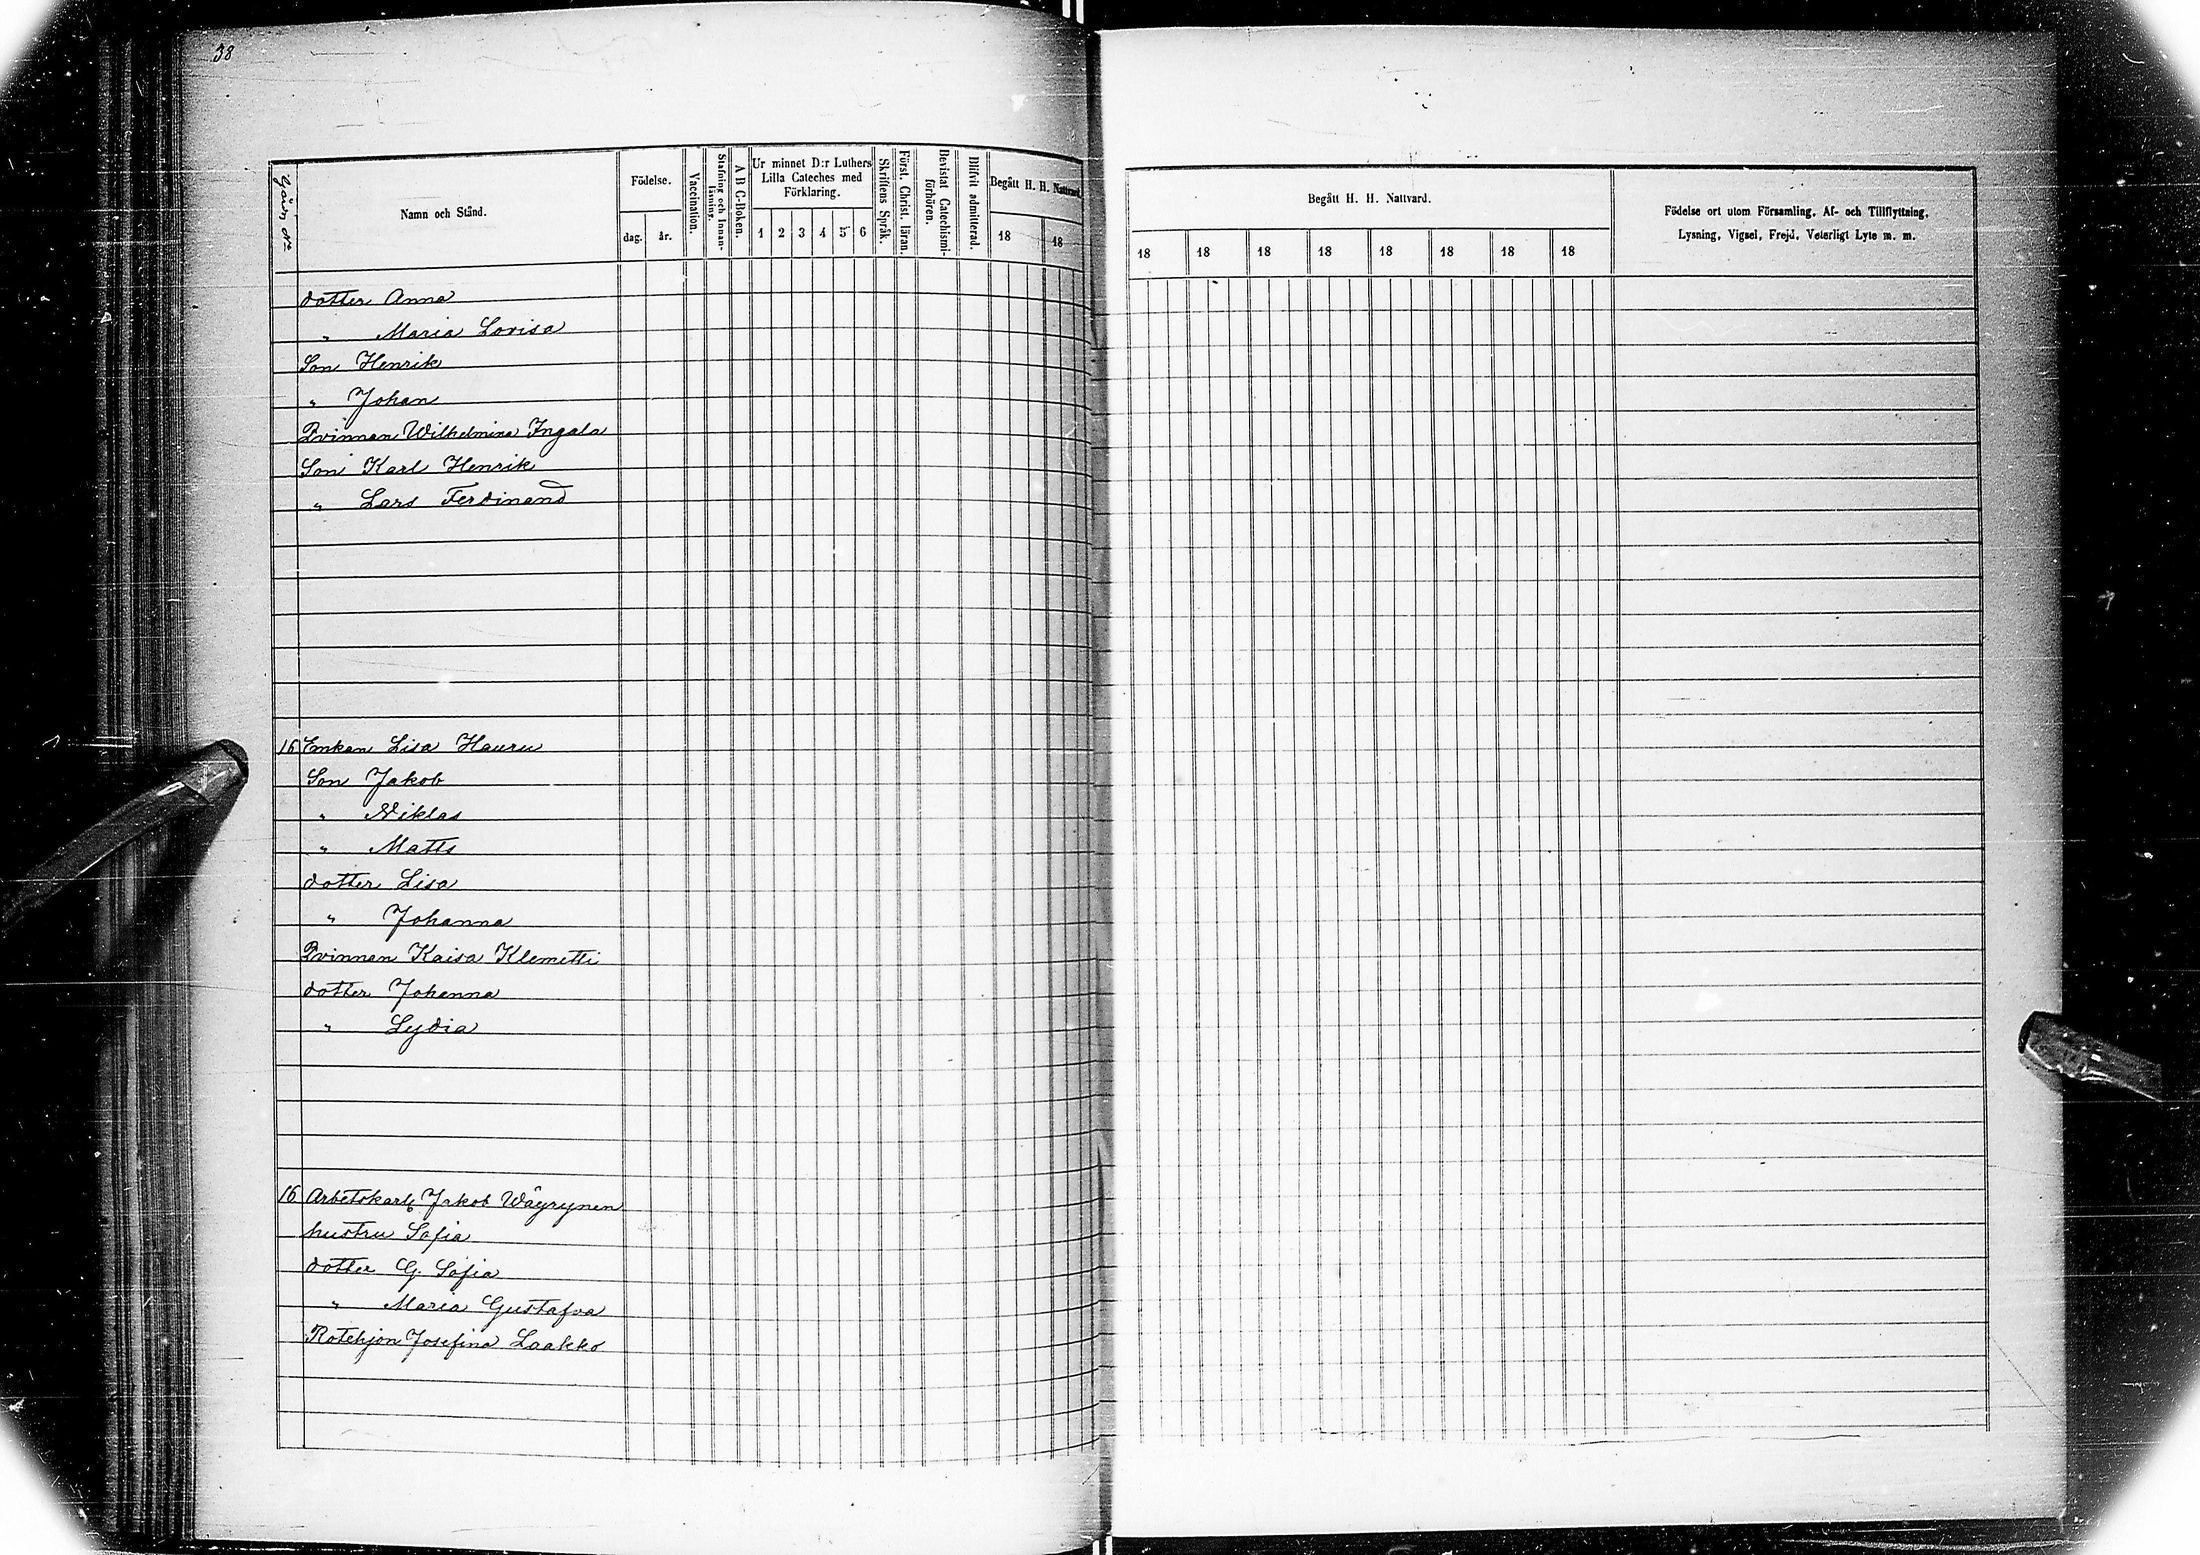 38
Gård N:o
Namn och Stånd.
Födelse.
dag. år.
Vaccination.
Stafning och Innan-
läsning.
A B C-Boken.
Ur minnet D:r Luthers
Lilla Cateches med
Förklaring.
1 2 3 4 5 6
Skriftens Språk.
Först. Christ. läran.
Bevistat Catechismi-
förhören.
Blifvit admitterad.
Begått H. H. Nattvard.
18 18
Begått H. H. Nattvard.
18 18 18 18 18 18 18 18
Födelse ort utom Församling, Af- och Tillflyttning,
Lysning, Vigsel, Frejd, Veterligt Lyte m. m.
dotter Anna
" Maria Lovisa
Son Henrik
" Johan
Qvinnan Wilhelmina Ingala
Son Karl Henrik
" Lars Ferdinand
16 Enkan Lisa Hauru
Son Jakob
" Niklas
" Matts
dotter Lisa
" Johanna
Qvinnan Kaisa Klemetti
dotter Johanna
" Lydia
16 Arbetskarl Jakob Wäyrynen
hustru Sofia
dotter G. Sofia
" Maria Gustafva
Rotehjon Josefina Laakko